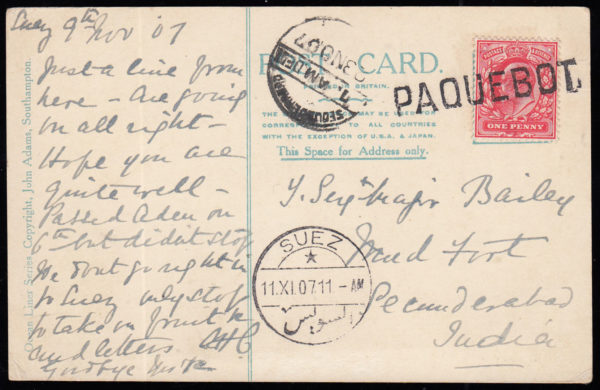 Suez 9th Nov '07
Just a line from
here - Are going
on all right -
Hope you are
quite well -
Passed Aden on
6th but didn't stop
We dont go right in
to Suez only stop
to take on fruit
and letters
Goodbye
Ocean Liner Series, Copyright, John Adams, Southampton.
POST CARD.
BRITAIN.
THE MAY BE USED FOR
CORRES TO ALL COUNTRIES
WITH THE EXCEPTION OF U.S.A. & JAPAN.
This Space for Address only.
POSTAGE REVENUE
ONE PENNY
PAQUEBOT.
NO 07
SUEZ
11.XI.07.11 - AM
السويس
Major Bailey
Mud Fort
Secunderabad
India